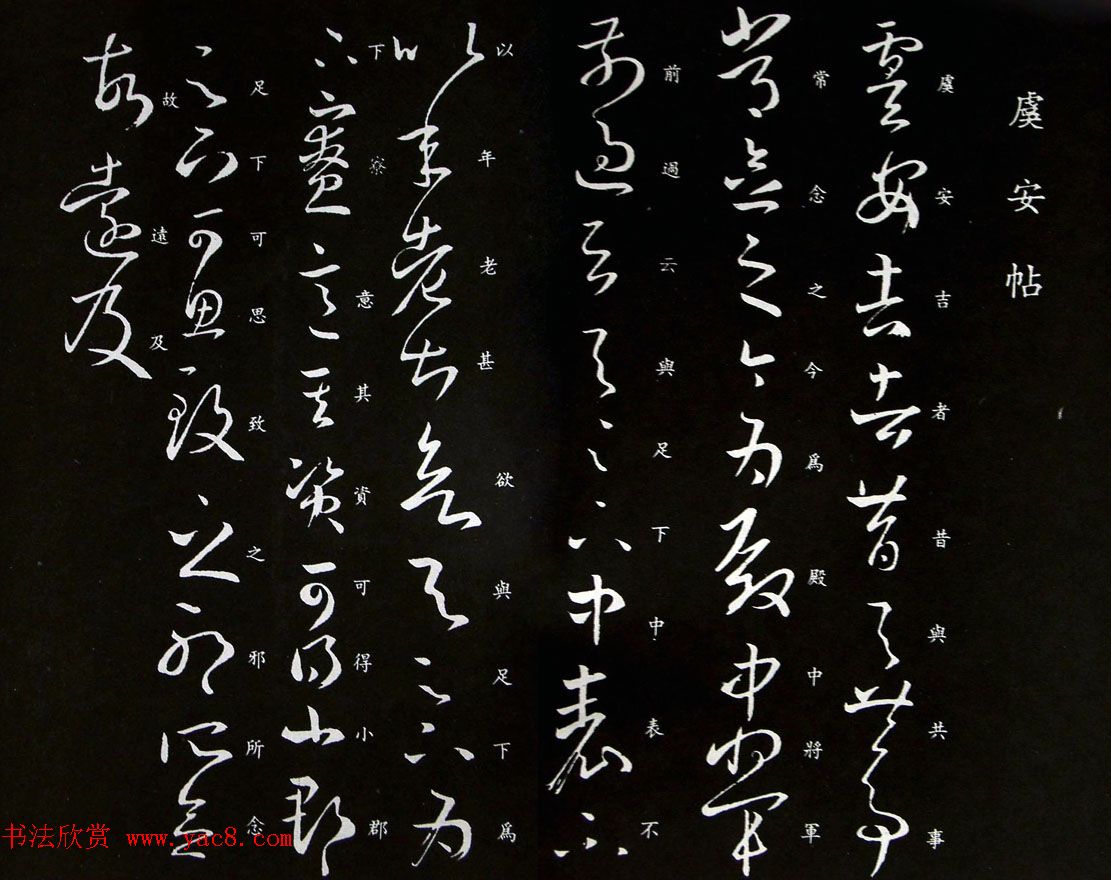 虞安帖
虞安吉者昔與共事
常念之今為殿中將軍
前過云與足下中表不
以年老甚欲與足下為
下寮意其資可得小郡
足下可思致之邪所念
故遠及
书法欣赏 www.yac8.com